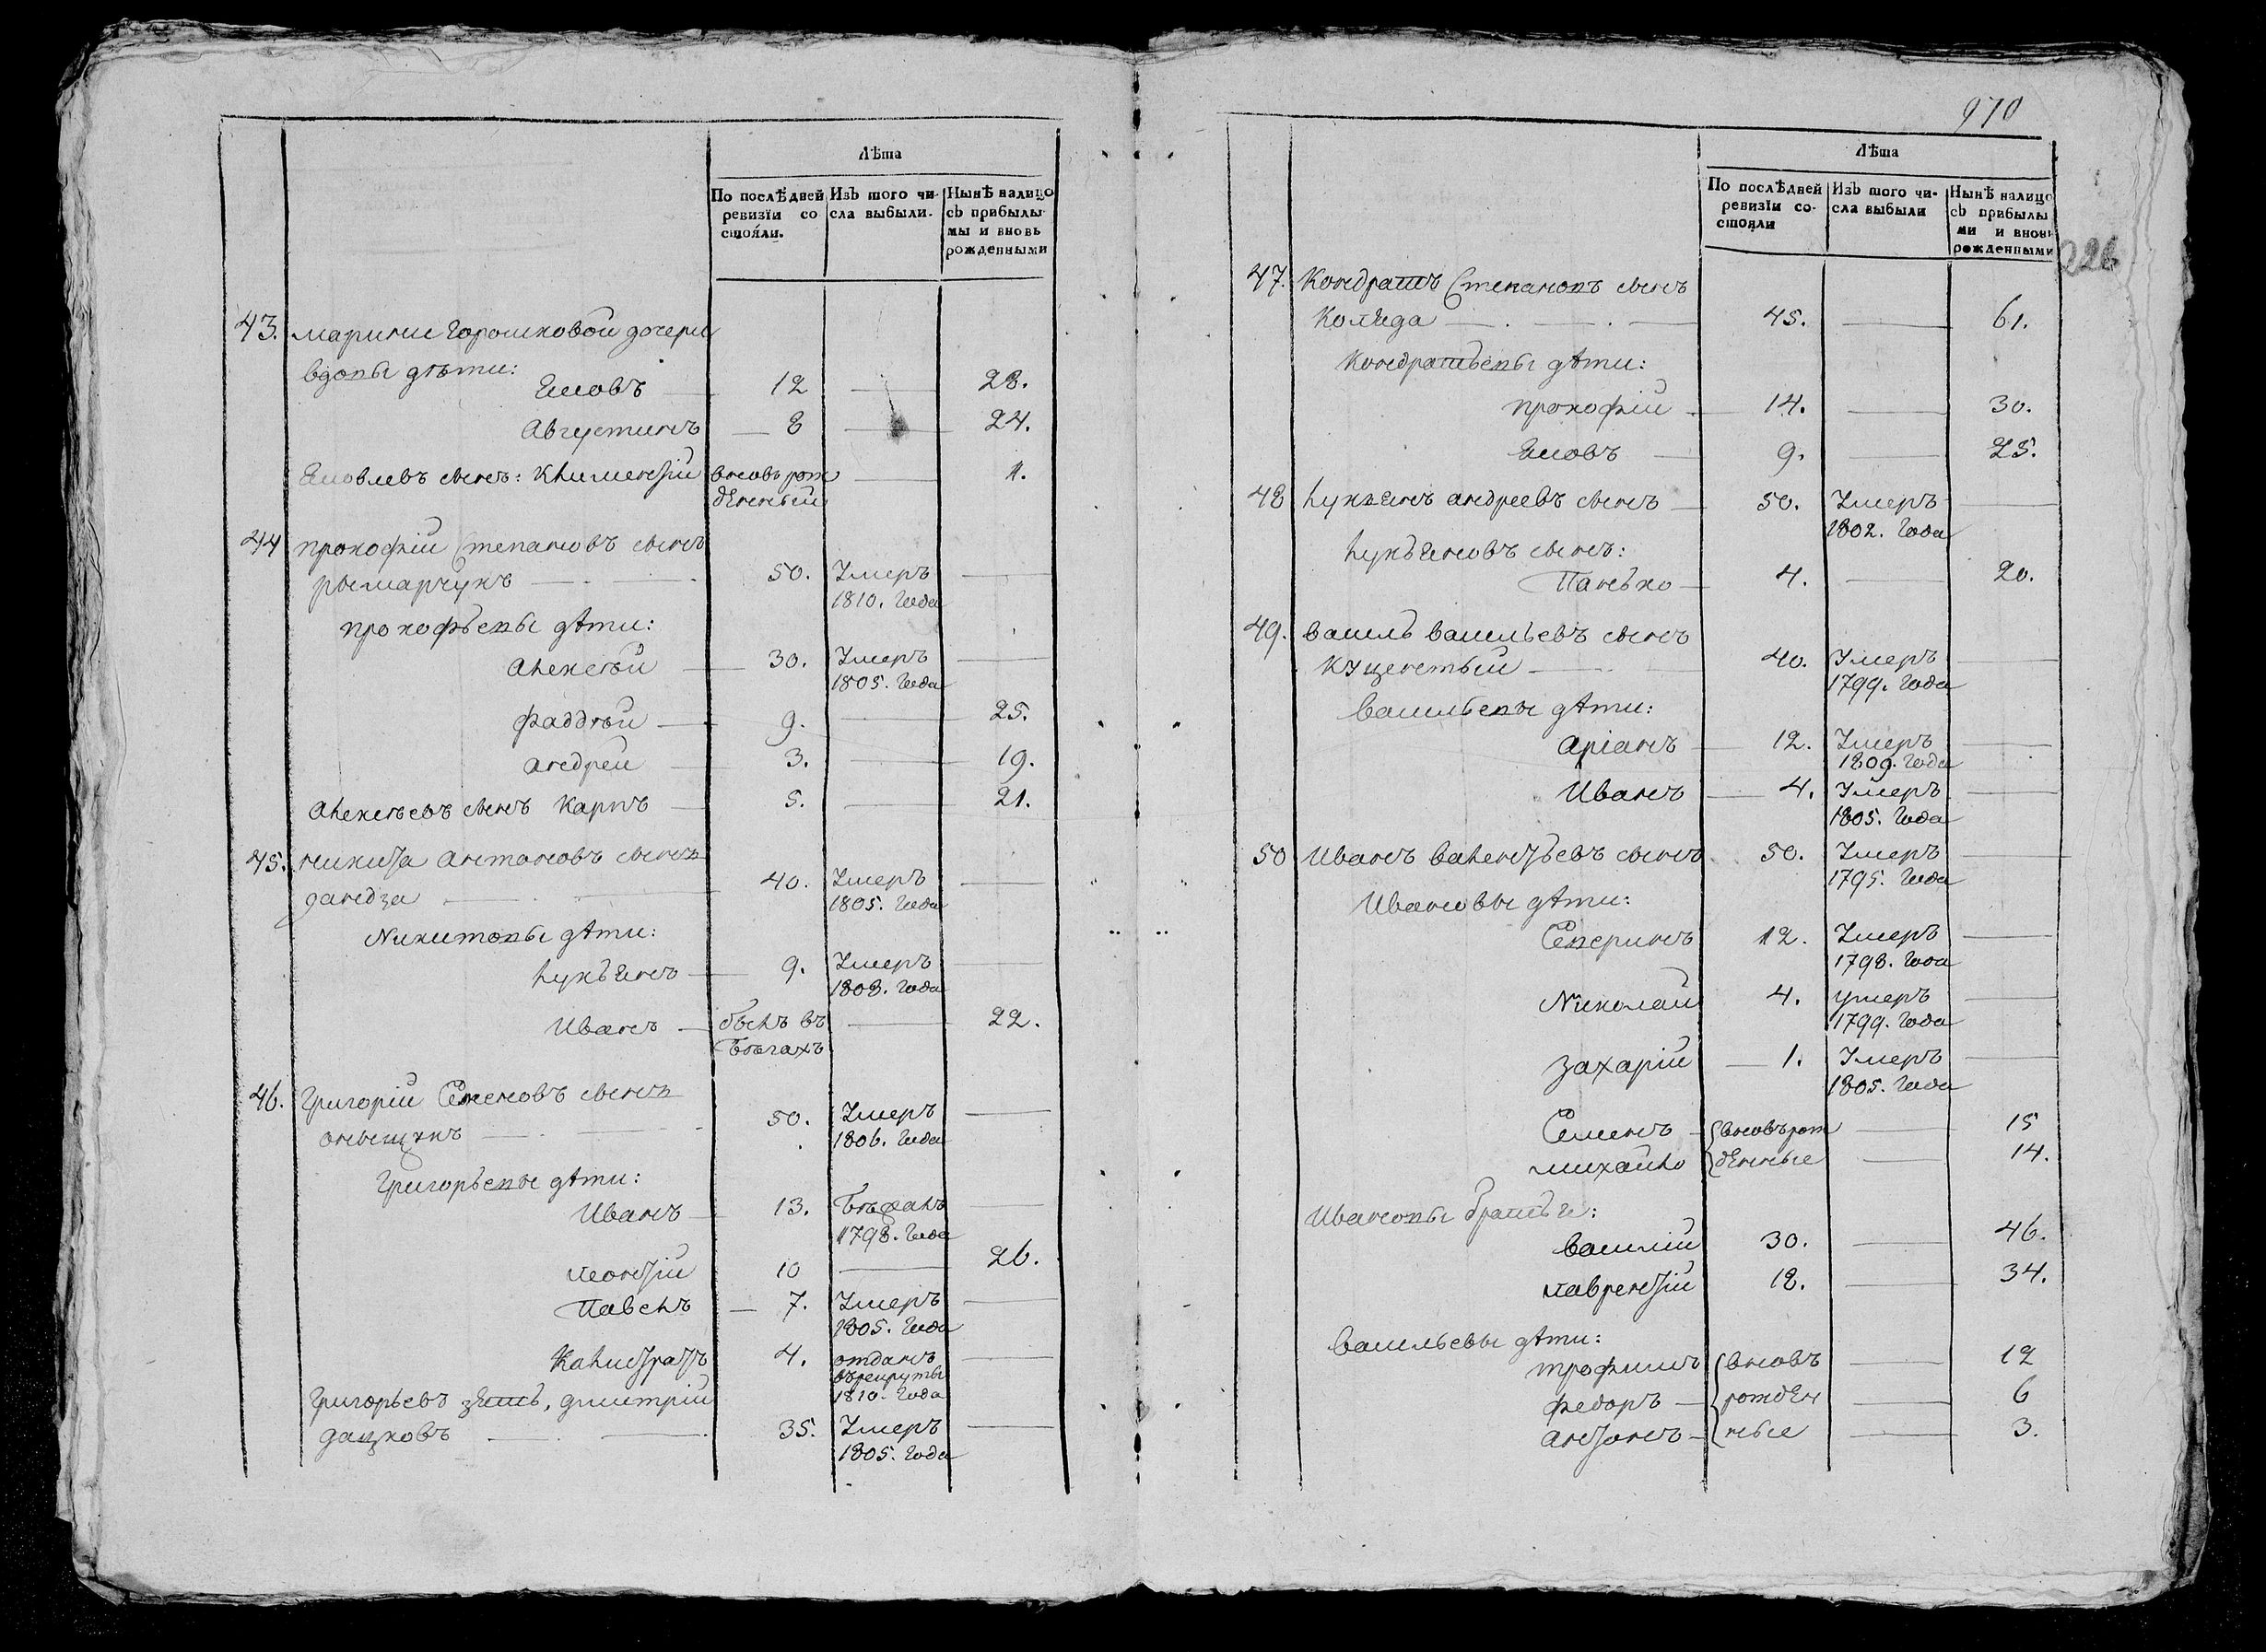 Лѣта
По послѣдней ревизїи состояли.
Изъ того числа выбыли.
Нынѣ налицо съ прибылымы и вновь рожденными
43. марини Горошковой дочери
вдовы дѣти:
Яковъ 12 — 28.
Августинъ — 8 — 24.
Яковлевъ сынъ: Климентій вновь рож — 1.
денный
44 прокофій Степановъ сынъ
рымарчукъ — 50. Умеръ —
1810. Года
прокофьевы дѣти:
Алексѣй — 30. Умеръ —
1805. Года
фаддѣй — 9. — 25.
андрей — 3. — 19.
Алексѣевъ сынъ Карпъ — 5. — 21.
45. никита антоновъ сынъ
дандза — 40. Умеръ —
1805. Года
Никитовы дѣти:
лукъянъ — 9. Умеръ —
1808. Года
Иванъ — былъ въ — 22.
бѣгахъ
46. Григорій Семеновъ сынъ
50. Умеръ —
1806. Года
Григорьевы дѣти:
Иванъ — 13. Бѣжалъ —
1798. Года
леонтій 10 — 26.
Павелъ — 7. Умеръ —
1805. Года
Калистратъ 4. отданъ —
въ рекруты
1810. Года
Григорьевъ зять, дмитрій
дацковъ — 35. Умеръ —
1805. Года
970
226
Лѣта
По послѣдней ревизїи состояли
Изъ того числа выбыли
Нынѣ налицо съ прибылыми и вновь рожденными
47. Кондратъ Степановъ сынъ
Коляда — 45. — 61.
Кондратьевы дѣти:
прокофій — 14. — 30.
Яковъ — 9. — 25.
48 лукъянъ андреевъ сынъ — 50. Умеръ —
1802. Года
лукъяновъ сынъ:
Панько — 4. — 20.
49. василь васильевъ сынъ
Куцентый — 40. Умеръ —
1799. Года
васильевы дѣти:
аріанъ — 12. Умеръ —
1809. Года
Иванъ — 4. Умеръ —
1805. Года
50 Иванъ валентьевъ сынъ 50. Умеръ —
1795. Года
Ивановы дѣти:
Северинъ 12. Умеръ —
1798. Года
Николай 4. умеръ —
1799. Года
захарій — 1. Умеръ —
1805. Года
Семенъ — вновь рож — 15
михайло денные — 14.
Ивановы братья:
василій 30. — 46.
лаврентій 18. — 34.
васильевы дѣти:
трофимъ вновь — 12
федоръ — рожден — 6
антонъ — ные — 3.